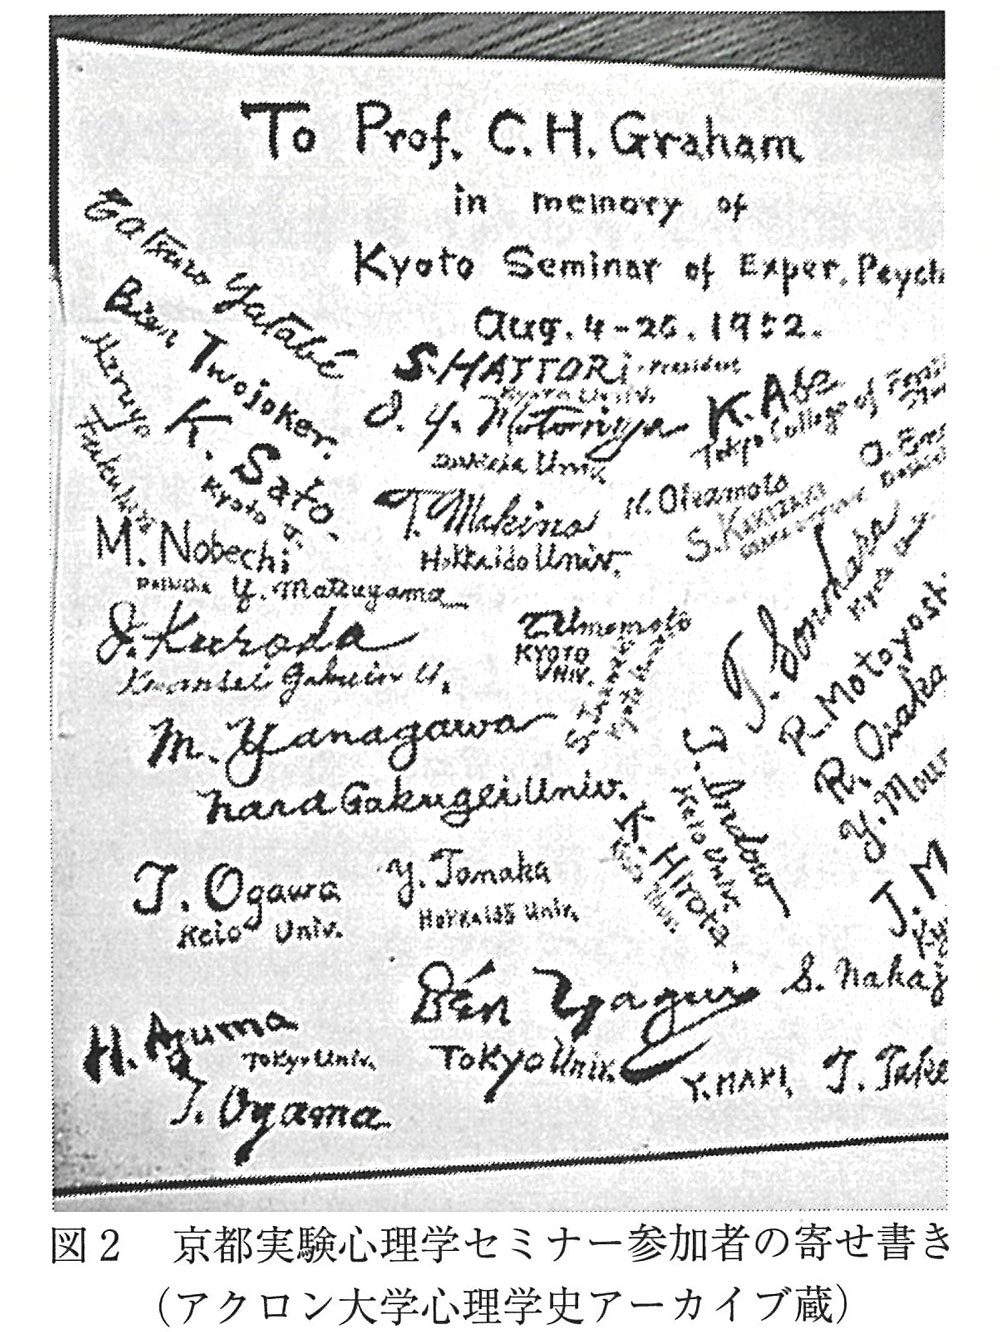 To Prof. C.H. Graham
in memory of
Kyoto Seminar of Exper. Psych
Aug. 4-26. 1952.
Tatsuro Yatabé
Bien Twojoker.
Haruyo
S. HATTORI President
Kyoto Univ.
J. Y. Motomiya
K. Abe
Tokyo College of
K. Sato.
Kyoto U.
T. Makino
Hokkaido Univ.
K. Okamoto
S. KAKIZAKI
M. Nobechi
Y. Matsuyama
J. Kuroda
Kwansei Gakuin U.
T. Umemoto
KYOTO
UNIV.
T. Sonohara
Kyoto U
R. Motoyoshi
R. Osaka
M. Yanagawa
Nara Gakugei Univ.
T. Indow
Keio Univ.
K. Hirota
Keio Univ.
T. Ogawa
Keio Univ.
Y. Tanaka
Hokkaido Univ.
J. M
S. Nakaj
Ben Yagui
Tokyo Univ.
H. Azuma
Tokyo Univ.
T. Oyama
Y. MAKI,
T. Take
図2 京都実験心理学セミナー参加者の寄せ書き
（アクロン大学心理学史アーカイブ蔵）